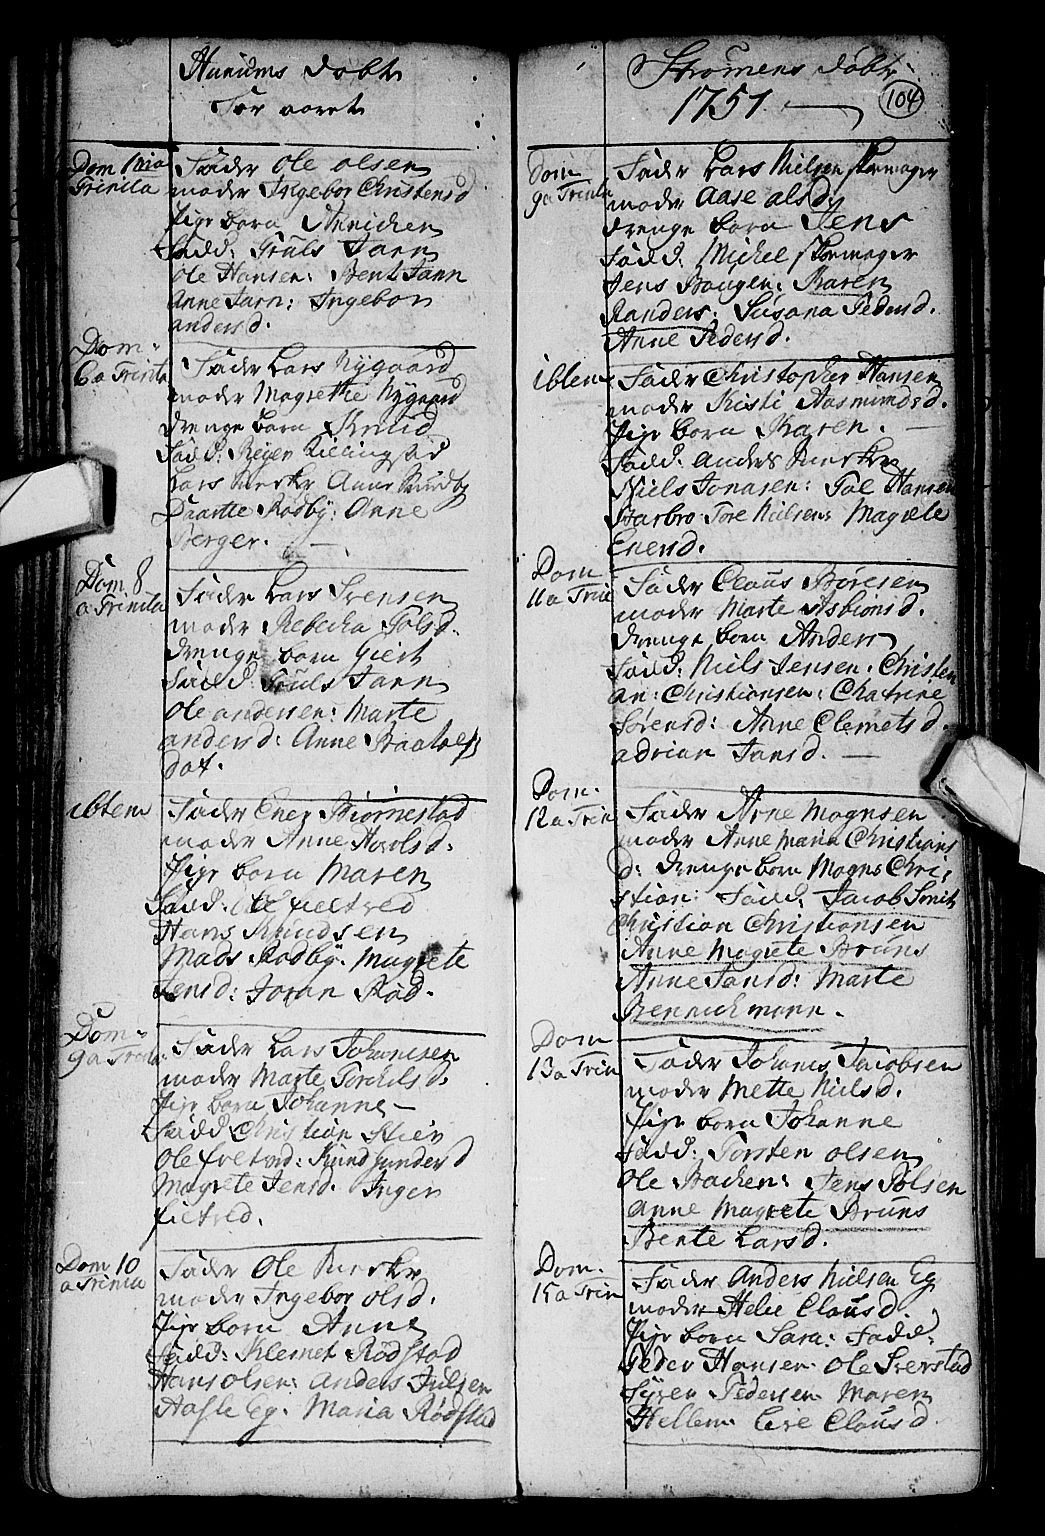 Hurums döbte
for aaret
Dom 1 ma
Trinita
Fader Ole olsen
moder Ingebor Christensd
Pige barn Annichen
fadd: Truls Tarn
Ole Hansen: Bent Tarn
Anne Tarn: Ingebor
andersd.
Dom
6 a Trinita
Fader Lars Nygaard
moder Magrethe Nygaard
drenge barn Knud
fadd: Rejer Killingstad
Lars Anne Rudby
Daarte Rödby: Anne
Berger.
Dom 8
a Trinita
Fader Lars Svensen
moder Rebecka Tolsd.
drenge barn Giert
fadd: Truls Tarn
Ole andersen: Marte
andersd: Anne
dat.
ibtem
Fader Ener Biörnestad
moder Anne Havolsd.
Pige barn Maren
fadd: Ole
Hans Knudsen
Mads Rödby. Magrete
Jensd: Joran Röd.
Dom
9 a Trinita
Fader Lars Johannesen
moder Marte Torchilsd.
Pige barn Johanne
fadd Christian Stiev
Ole Knud gundersd
Magrete Jensd. Inger

Dom 10
a Trinita
Fader Ole
moder Ingebor olsd.
Pige barn Anne
fadd: Klemet Rödstad
Hans olsen: Anders Julsen
Hasle Eg. Maria Rödstad
Strömens döbte
1751
104
Dom
9 a Trinita
Fader Lars Nielsen skomager
moder Aase alsd
drenge barn Jens
fadd: Michel skomager
Jens Haugen: Karen
Randers: Susana Pedersd.
Anne Pedersd.
ibtem
Fader Christopher Hansen
moder Kisti Aasmundsd.
Pige barn Karen.
fadd: Anders
Niels Jonasen: Tol Hansen
Barbro Tore Nielsen: Magrete
Enersd.
Dom
11 a Trin
Fader Claus Börresen
moder Marte Asbionsd.
drenge barn Anders
fadd: Niels Jensen: Christen
an: Christiansen: Chatrine
Sörensd: Anne Clemetsd.
adrian Jansd.
Dom.
12 a Trin
Fader Arne Magnsen
moder Anne Maria Christians
d: drenge barn Magns Chri:
stian: Fadd: Jacob Smit
Christian Christiansen
Anne Magrete Bruns
Anne Jansd: Marte
Bennichmann.
Dom
13 a Trin
Fader Johanes Jacobsen
moder Mette Nielsd.
Pige barn Johanne
fadd: Torsten olsen
Ole Backen: Jens Polsen
Anne Magrete Bruns
Bente Larsd.
Dom.
15 a Trin
Fader Anders Nielsen Eg
moder Helie Clausd.
Pige barn Sara: Fadd:
Peder Hansen. Ole Sverstad
Syver Pedersen. Maren
Hellem. Live Clausd